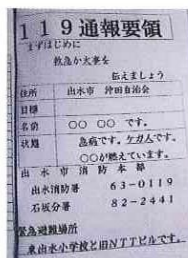 119通報要領
まずはじめに
救急か火事を
伝えましょう
住所 出水市 沖田自治会
目標
名前 ○○ ○○ です。
状態 急病です。ケガ人です。
○○が燃えています。
出水市消防本部
出水消防署 63-0119
石坂分署 82-2441
緊急避難場所
東出水小学校と旧NTTビルです。